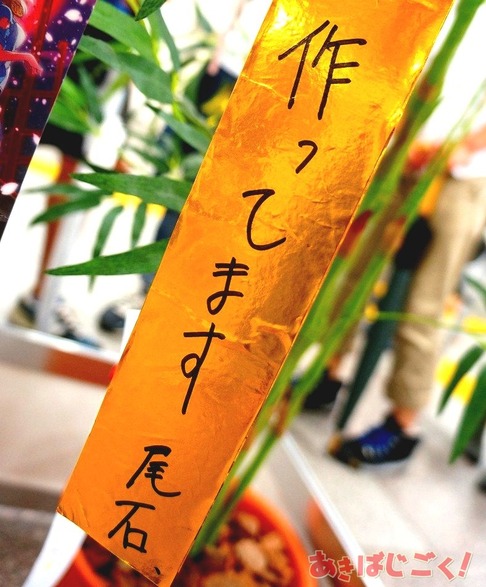 作ってます
尾石、
あきばじごく!